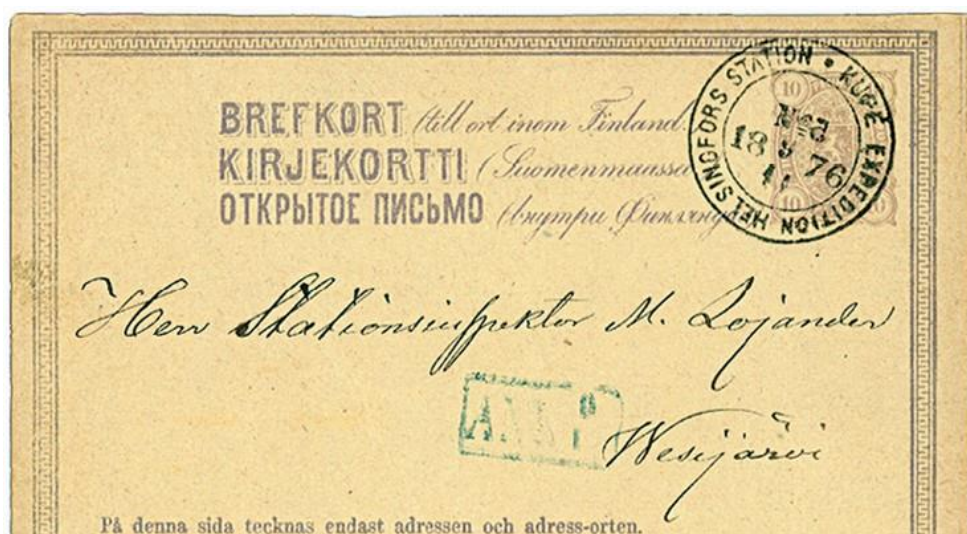 BREFKORT (till ort inom Finland.
KIRJEKORTTI (Suomenmaassa
ОТКРЫТОЕ ПИСЬМО (внутри Финлянд
HELSINGFORS STATION • KUPÉ EXPEDITION
10
18 76
10
Herr Stationsinspektor M. Lojander
ANK
Wesijärvi
På denna sida tecknas endast adressen och adress-orten.